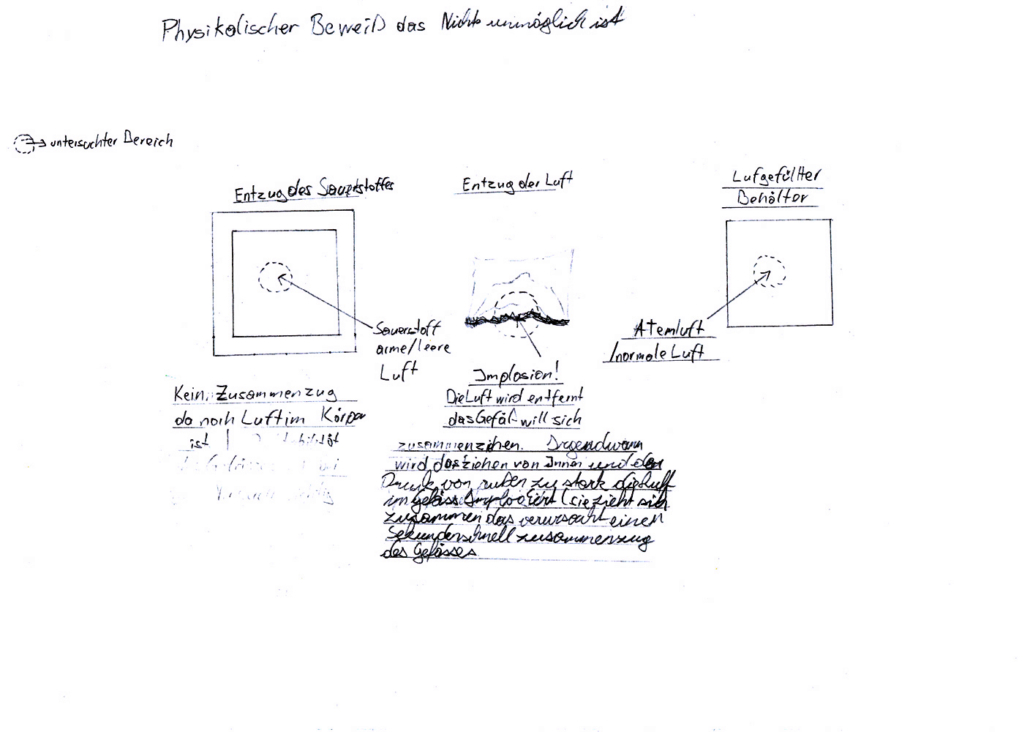 Physikalischer Beweiß das Nichts unmöglich ist
untersuchter Bereich
Entzug des Sauerstoffes
Sauerstoff
arme/leere
Luft
Kein Zusammenzug
da noch Luft im Körper
ist
Entzug der Luft
Implosion!
Die Luft wird entfernt
das Gefäß will sich
zusammenziehen. Irgendwann
wird das ziehen von Innen und der
Druck von außen zu stark die Luft
im Gefäss Implodiert (sie zieht sich
zusammen das verursacht einen
Sekundenschnell zusammenzug
des Gefässes
Luftgefüllter
Behälter
Atemluft
/normale Luft